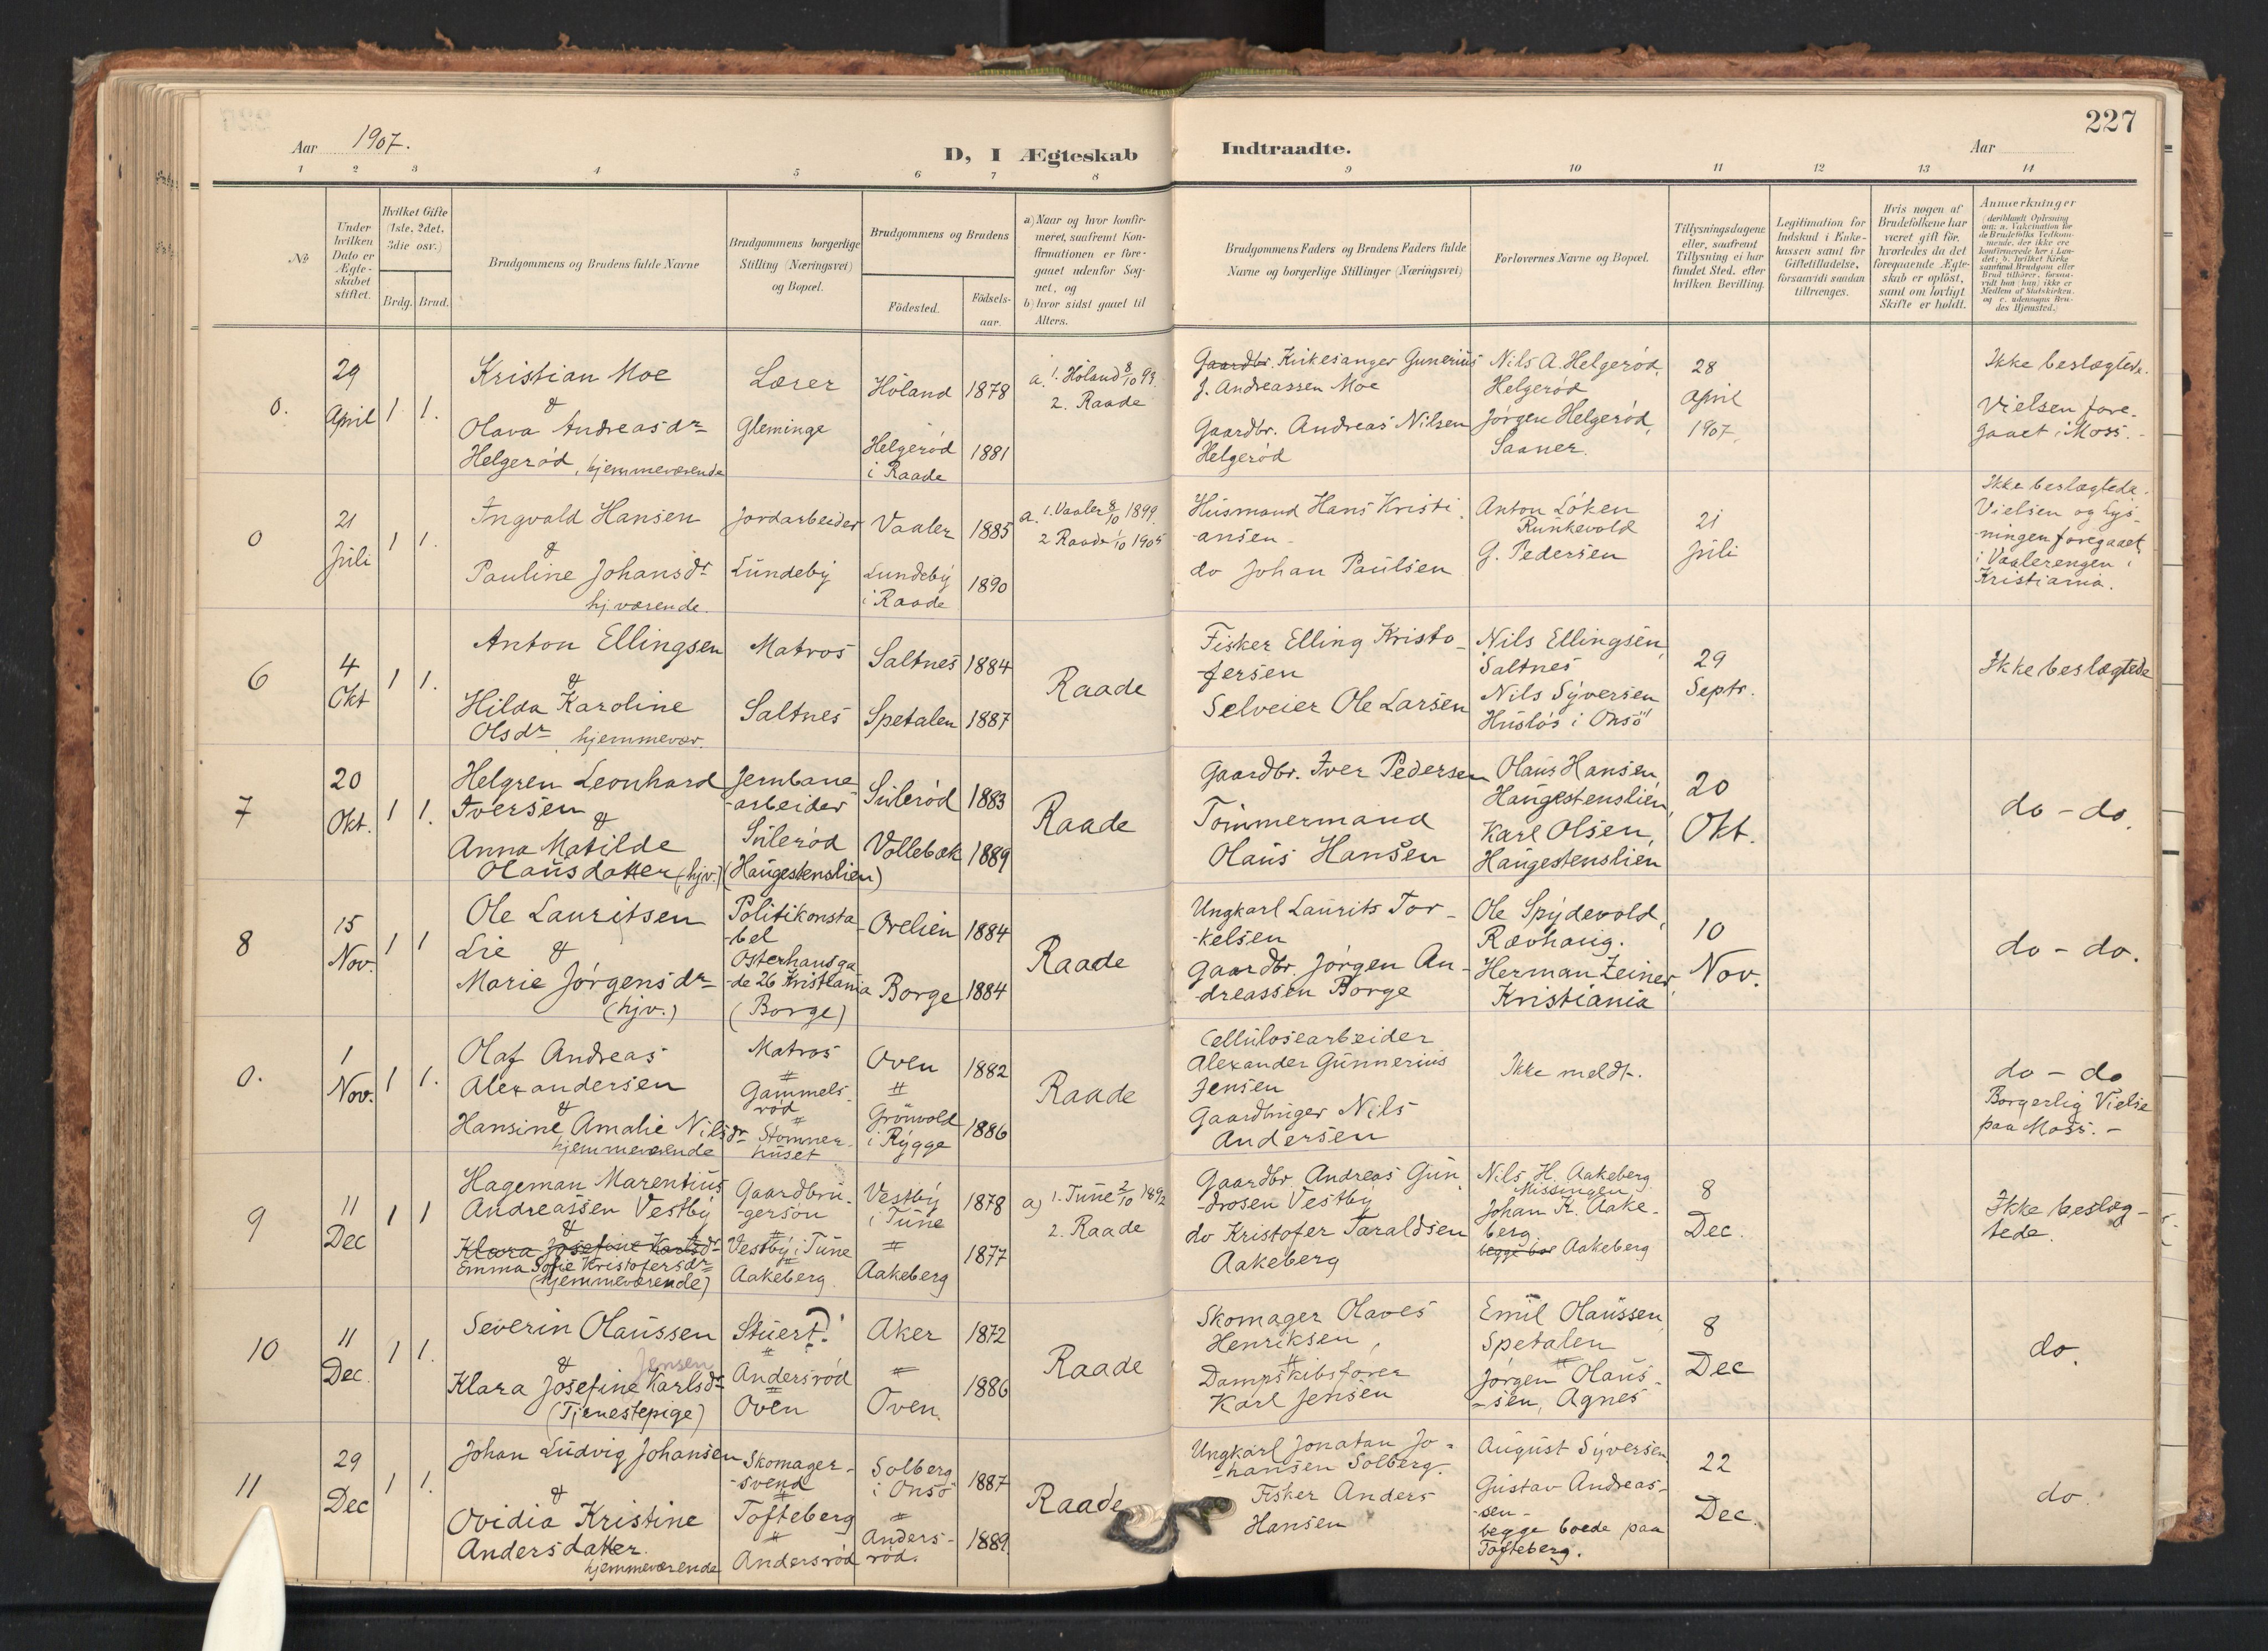 227
Aar 1907.
D, I Ægteskab Indtraadte.
Aar
1 2 3 4 5 6 7 8 9 10 11 12 13 14
No
Under hvilken Dato er Ægteskabet stiftet.
Hvilket Gifte (1ste, 2det, 3die osv.)
Brdg. Brud.
Brudgommens og Brudens fulde Navne
Brudgommens borgerlige Stilling (Næringsvei) og Bopæl.
Brudgommens og Brudens
Födested.
Födselsaar.
a) Naar og hvor konfirmeret, saafremt Konfirmationen er foregaaet udenfor Sognet, og
b) hvor sidst gaaet til Alters.
Brudgommens Faders og Brudens Faders fulde Navne og borgerlige Stillinger (Næringsvei)
Forlovernes Navne og Bopæl.
Tillysningsdagene eller, saafremt Tillysning ei har fundet Sted, efter hvilken Bevilling.
Legitimation for Indskud i Enkekassen samt for Giftetilladelse, forsaavidt saadan tiltrænges.
Hvis nogen af Brudefolkene har været gift för, hvorledes da det foregaaende Ægteskab er oplöst, samt om lovligt Skifte er holdt.
Anmerkninger (deriblandt Oplysning om: a. Vakcination for de Brudefolks Vedkommende, der ikke ere konfirmerede her i Landet; b. hvilket Kirkesamfund Brudgom eller Brud tilhörer, forsaavidt han (hun) ikke er Medlem af Statskirken, og c. udensogns Brudes Hjemsted.)
0.
29
April
1 1.
Kristian Moe
&
Olava Andreasdr
Helgeröd, hjemmeværende
Lærer
Gleminge
Höland 1878
Helgeröd
i Raade 1881
a. 1. Höland 8/10 93.
2. Raade
Gaardbr. Kirkesanger Gunerius
J. Andreassen Moe
Gaardbr. Andreas Nilsen
Helgeröd
Nils A. Helgeröd,
Helgeröd
Jörgen Helgeröd,
Saaner.
28
April
1907.
Ikke beslægtede.
Vielsen fore-
gaaet i Moss.-
0
21
Juli
1 1.
Ingvald Hansen
&
Pauline Johansdr
hj. værende.
Jordarbeider
Lundeby
Vaaler 1885
Lundeby
i Raade 1890
a. 1. Vaaler 8/10 1899.
2 Raade 1/10 1905
Husmand Hans Kristi-
-ansen-
do Johan Paulsen
Anton Löken
Runkevold
G. Pedersen
21
Juli
Ikke beslægtede.
Vielsen og lys-
-ningen foregaaet
i Vaalerengen i
Kristiania.
6
4
Okt
1 1.
Anton Ellingsen
&
Hilda Karoline
Olsdr hjemmevær.
Matros
Saltnes
Saltnes 1884
Spetalen 1887
Raade
Fisker Elling Kristo-
-fersen
Selveier Ole Larsen
Nils Ellingsen,
Saltnes
Nils Syversen
Huslös i Onsö
29
Septr.
Ikke beslægtede
7
20
Okt.
1 1.
Helgren Leonhard
Iversen
&
Anna Matilde
Olausdatter (hjv.)
Jernbane
-arbeider
Sulerød
(Haugestenslien)
Suleröd 1883
Vollebæk 1889
Raade
Gaardbr. Iver Pedersen
Tömmermand
Olaus Hansen
Olaus Hansen,
Haugestenslien,
Karl Olsen,
Haugestenslien
20
Okt.
do - do.
8
15
Nov.
1 1
Ole Lauritsen
Lie &
Marie Jörgensdr
(hjv.)
Politikonsta-
-bel
Osterhausga-
-de 26 Kristiania
(Borge)
Orelien 1884
Borge 1884
Raade
Ungkarl Laurits Tor-
-kelsen
Gaardbr. Jörgen An-
-dreassen Borge
Ole Spydevold,
Rævhaug.
Herman Zeiner,
Kristiania
10
Nov.
do - do.
0.
1
Nov.
1 1.
Olaf Andreas
Alexandersen
&
Hansine Amalie Nilsdr
hjemmeværende
Matros
Gammels-
röd
Stomner-
huset
Oven 1882
Grönvold
i Rygge 1886
Raade
Cellulosearbeider
Alexander Gunnerius
Jensen
Gaardbruger Nils
Andersen
Ikke meldt.
do - do
Borgerlig Vielse
paa Moss.-
9
11
Dec
1 1
Hageman Marentius
Andreassen Vestby
&
Klara Josefine Karlsdr
Emma Sofie Kristofersdr
(hjemmeværende)
Gaardbru-
-gersøn
Vestby i Tune
Aakeberg
Vestby
i Tune 1878
Aakeberg 1877
a) 1. Tune 2/10 1892
2. Raade
Gaardbr. Andreas Gun-
-drosen Vestby
do Kristofer Taraldsen
Aakeberg
Nils H. Aakeberg
Missingen
Johan K. Aake-
berg
begge bor Aakeberg
8
Dec.
Ikke beslæg-
tede.
10
11
Dec.
1 1.
Severin Olaussen
&
Jensen
Klara Josefine Karlsdr
(Tjenestepige)
Stuert?
Andersröd
Oven
Aker 1872
Oven. 1886
Raade
Skomager Olaves
Henriksen,
Dampskibsförer
Karl Jensen
Emil Olaussen,
Spetalen
Jörgen Olaus-
-sen, Agnes
8
Dec
do.
11
29
Dec
1 1.
Johan Ludvig Johansen
&
Ovidia Kristine
Andersdatter
hjemmeværende
Skomager-
-svend
Tofteberg
Andersröd
Solberg
i Onsö 1887
Anders-
röd. 1889.
Raade
Ungkarl Jonatan Jo-
-hansen Solberg.
Fisker Anders
Hansen
August Syversen
Gustav Andreas-
-sen-
begge boede paa
Tofteberg.
22
Dec.
do.